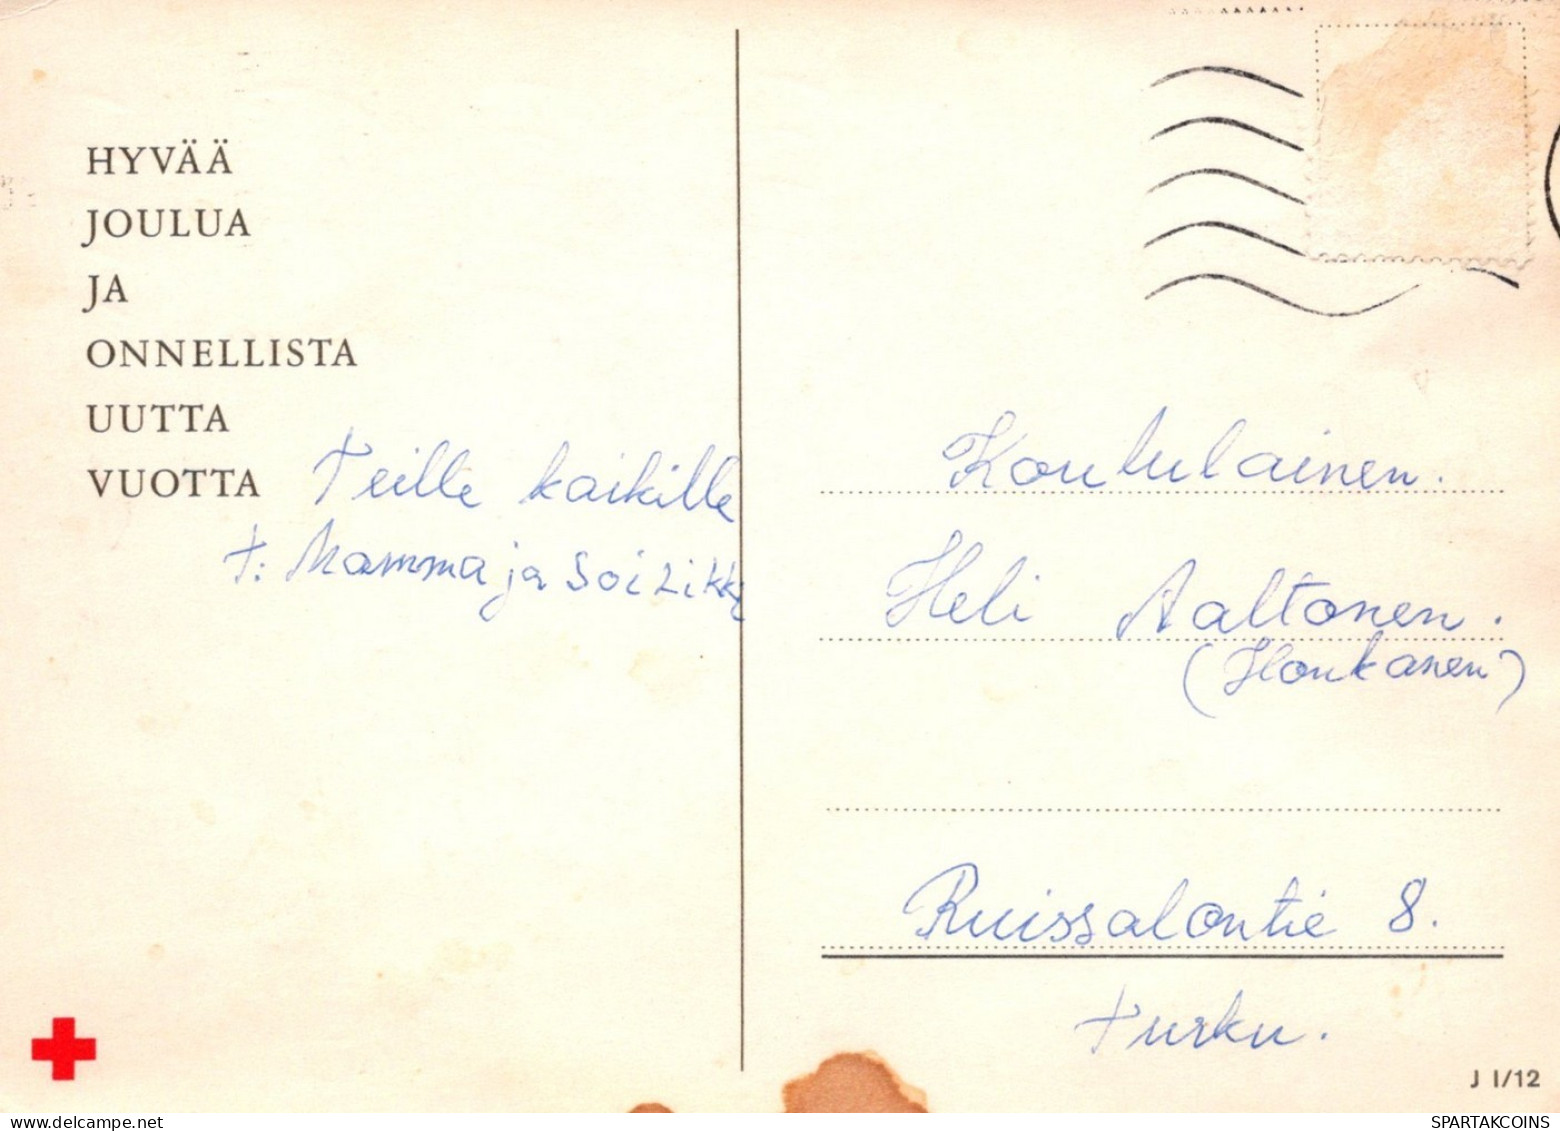 HYVÄÄ
JOULUA
JA
ONNELLISTA
UUTTA
VUOTTA
Teille kaikille
t: Mamma ja
Koululainen.
Heli Aaltonen.
(Honkanen)
Ruissalontie 8.
Turku.
J 1/12
SPARTAKCOINS